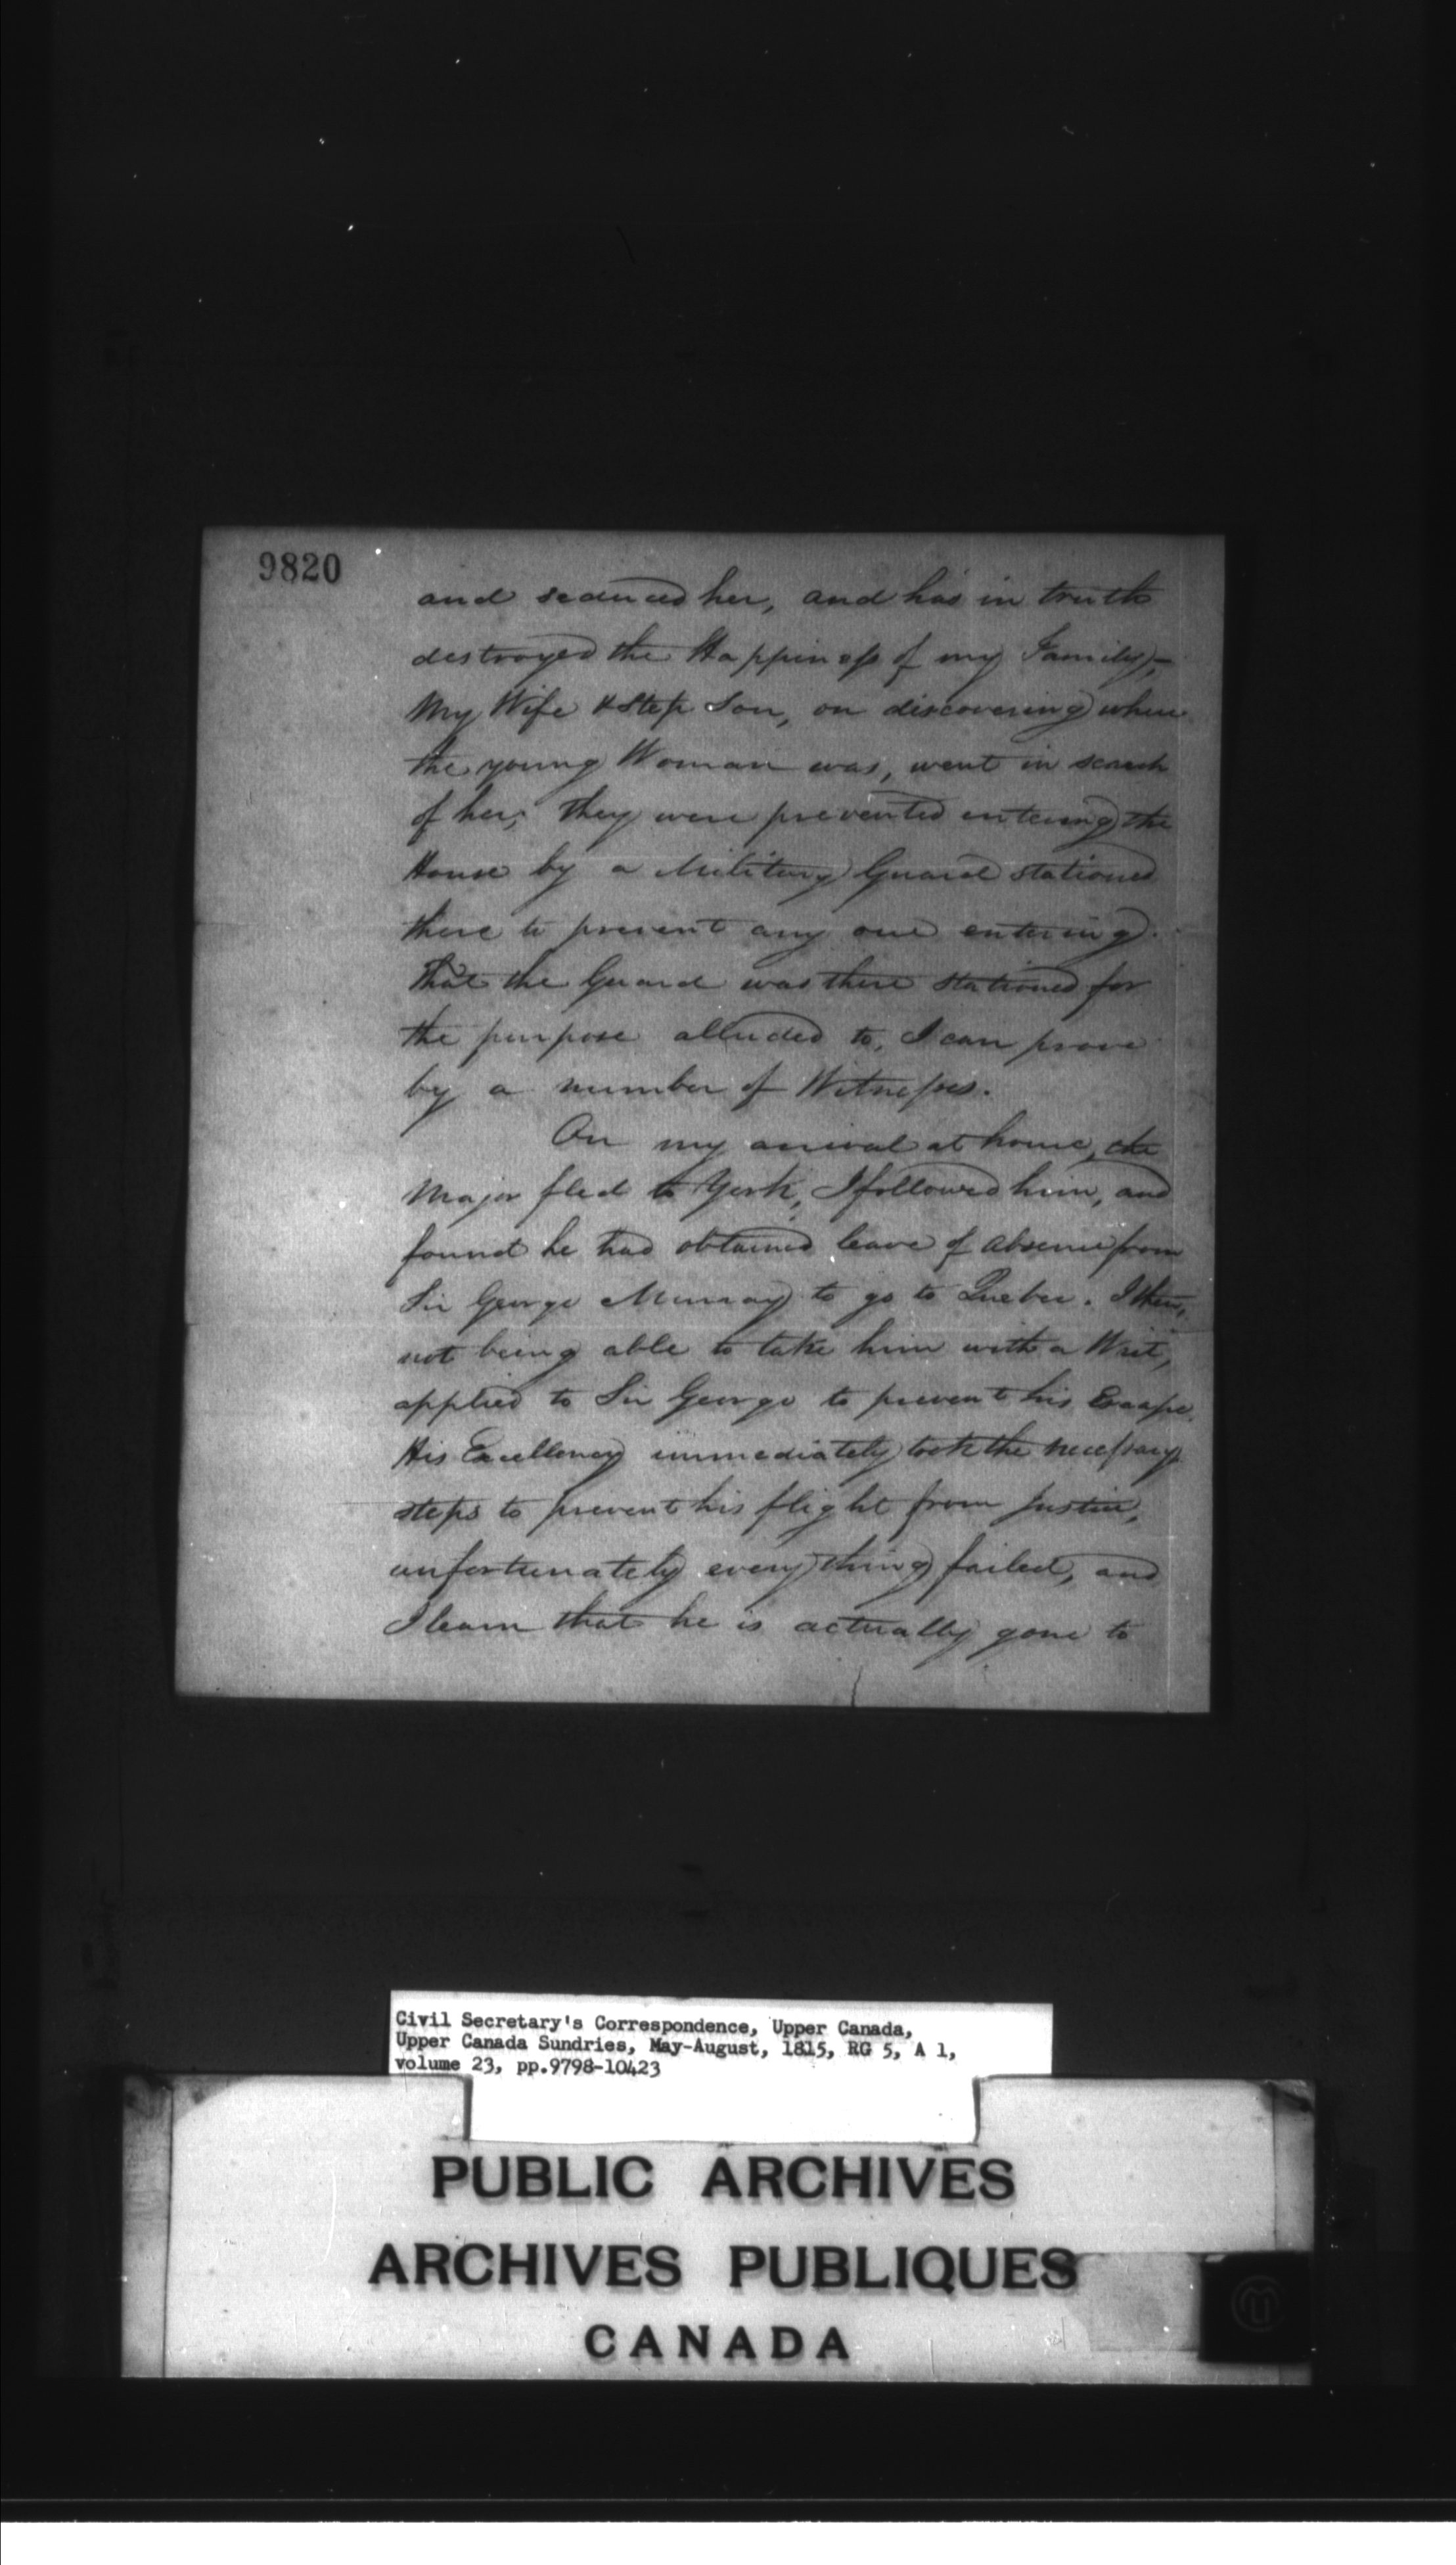 9820
and seduced her, and has in truth
destroyed the Happiness of my Family,-
My Wife & Step Son, on discovering where
the young Woman was, went in search
of her; they were prevented entering the
House by a Military Guard stationed
there to prevent any one entering.
That the Guard was there stationed for
the purpose alluded to, I can prove
by a number of Witnesses.
On my arrival at home, the
Major fled to York, I followed him, and
found he had obtained leave of absence from
Sir George Murray to go to Quebec. I then,
not being able to take him with a Writ,
applied to Sir George to prevent his Escape.
His Excellency immediately took the necessary
steps to prevent his flight from Justice,
unfortunately every thing failed, and
I learn that he is actually gone to
Civil Secretary's Correspondence, Upper Canada,
Upper Canada Sundries, May-August, 1815, RG 5, A 1,
volume 23, pp.9798-10423
PUBLIC ARCHIVES
ARCHIVES PUBLIQUES
CANADA